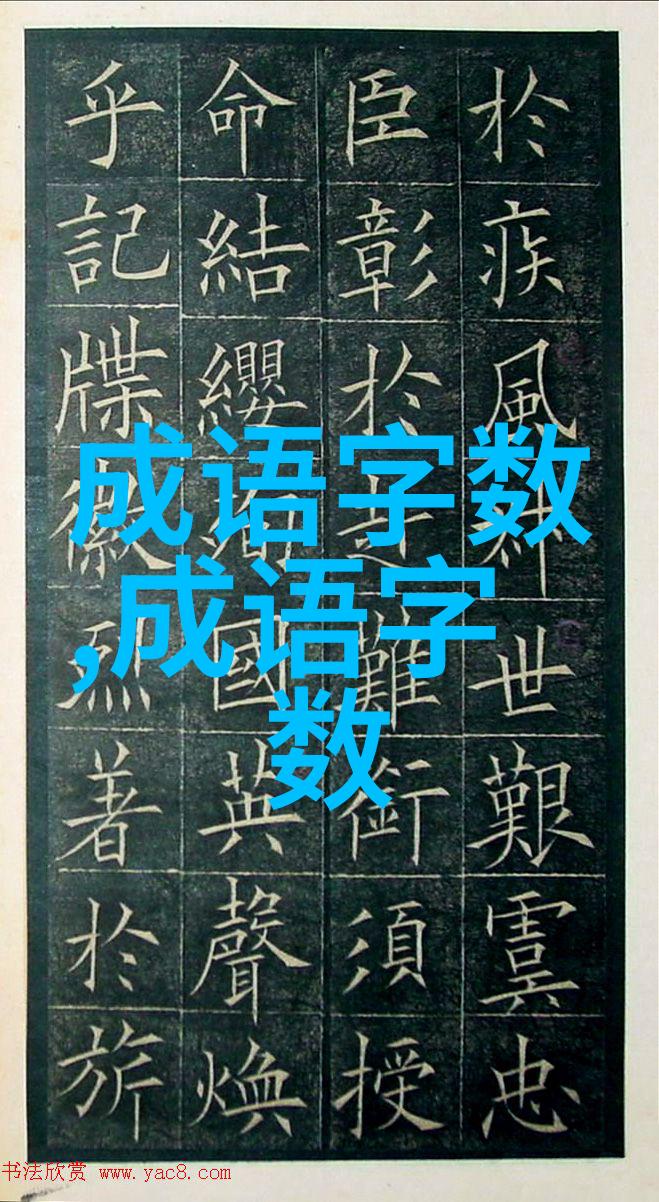 於疾風世艱虞忠
臣彰於難銜須授
命結纓國英聲煥
乎記牒徽烈著於旂
成语字数
,成语字
数
书法欣赏 www.yac8.com